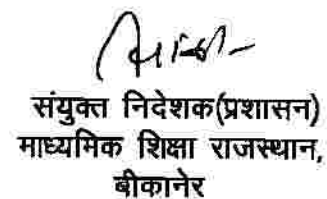 संयुक्त निदेशक(प्रशासन)
माध्यमिक शिक्षा राजस्थान,
बीकानेर